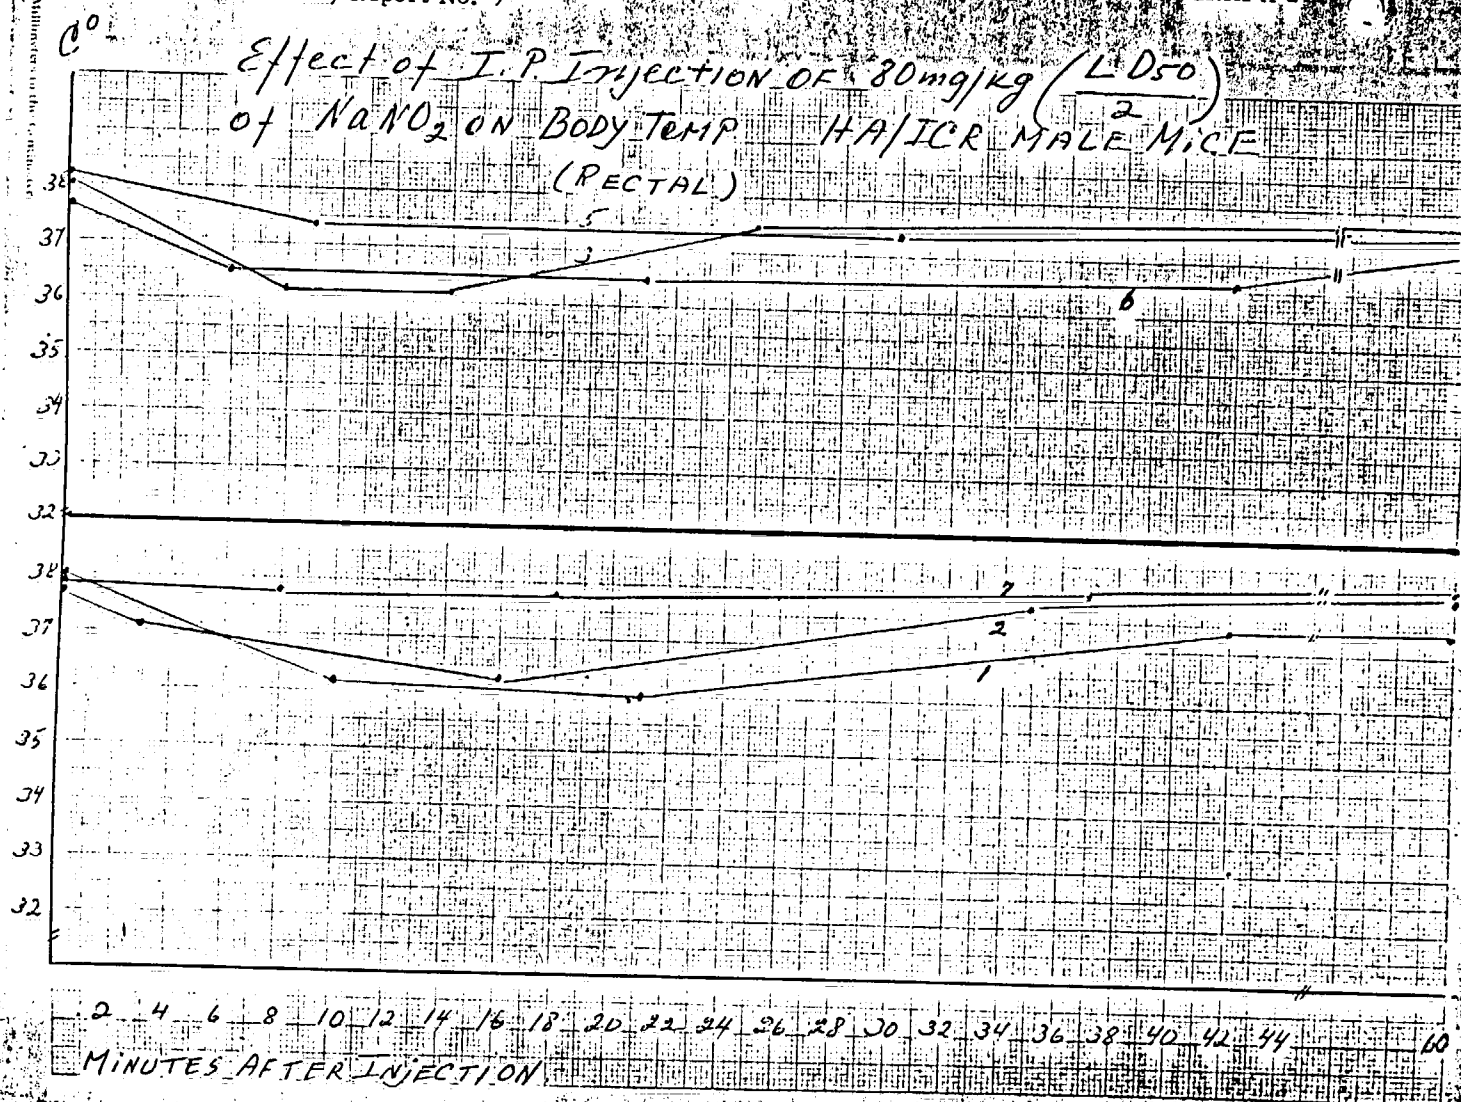 C°
Effect of I.P. Injection OF 80mg/kg (LD50/2)
of NaNO2 ON BODY TEMP HA/ICR MALE MICE
(RECTAL)
38
37
36
35
34
33
32
5
3
6
38
37
36
35
34
33
32
7
2
1
2 4 6 8 10 12 14 16 18 20 22 24 26 28 30 32 34 36 38 40 42 44 60
MINUTES AFTER INJECTION